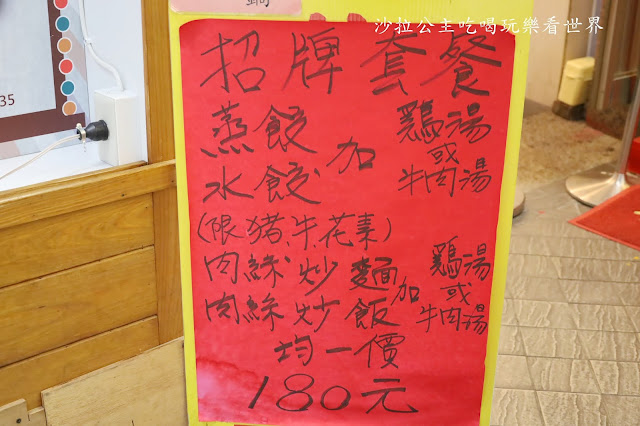 沙拉公主吃喝玩樂看世界
35
招牌套餐
蒸餃
水餃
加
鷄湯
或
牛肉湯
(限豬、牛、花素)
肉絲炒麵
肉絲炒飯
加
鷄湯
或
牛肉湯
均一價
180元